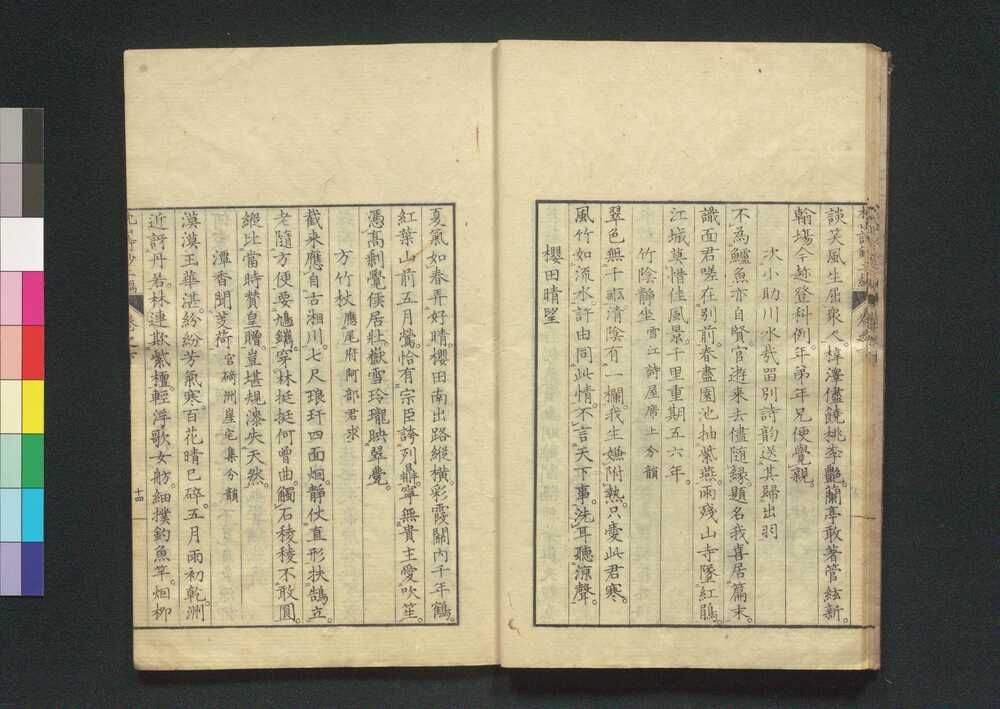 談笑風生屈衆人樟澤儘饒桃李艷蘭亭敢著管絃新
翰場今赴登科例年弟年兄便覺親
次小助川水哉留別詩韵送其歸出羽
不為鱸魚亦自賢宦遊來去儘隨縁題名我喜居篇末
識面君嗟在別前春盡園池抽紫燕雨殘山寺墜紅鵑
江城莫惜佳風景千里重期五六年
竹陰靜坐 雪江詩屋席上分韻
翠色無千畝清陰有一欄我生嫌附熱只憂此君寒
風竹如流水許由同此情不言天下事洗耳聽涼聲
櫻田晴望
夏氣如春弄好晴櫻田南出路縱横彩霞關內千年鶴
紅葉山前五月鶯恰有宗臣誇列鼎寧無貴主愛吹笙
憑高剩覺侯居壯獄雪玲瓏映翠甍
方竹杖 應尾府阿部君求
截來應自古湘川七尺琅玕四面烟靜仗直形扶鵠立
老隨方便要鳩鐫穿林挺挺何曾曲觸石稜稜不敢圓
縱比當時贊皇贈豈堪規漆失天然
潭香聞芰荷 宮碕洲崖宅集分韻
漠漠玉華湛紛紛芳氣寒百花晴已碎五月雨初乾洲
近訝丹若林連欺紫檀輕浮歌女舫細撲釣魚竿烟柳
十四